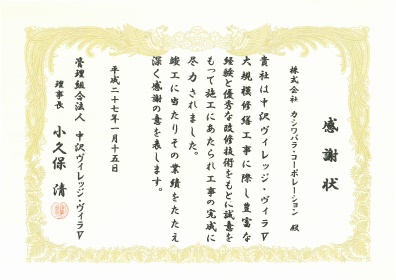 感謝状
株式会社 カシワバラ・コーポレーション 殿
貴社は中沢ヴィレッジ・ヴィラⅤ
大規模修繕工事に際し豊富な
経験と優秀な改修技術をもとに誠意を
もって施工にあたられ工事の完成に
尽力されました。
竣工に当たりその業績をたたえ
深く感謝の意を表します。
平成二十七年一月十五日
管理組合法人 中沢ヴィレッジ・ヴィラⅤ
理事長 小久保 清